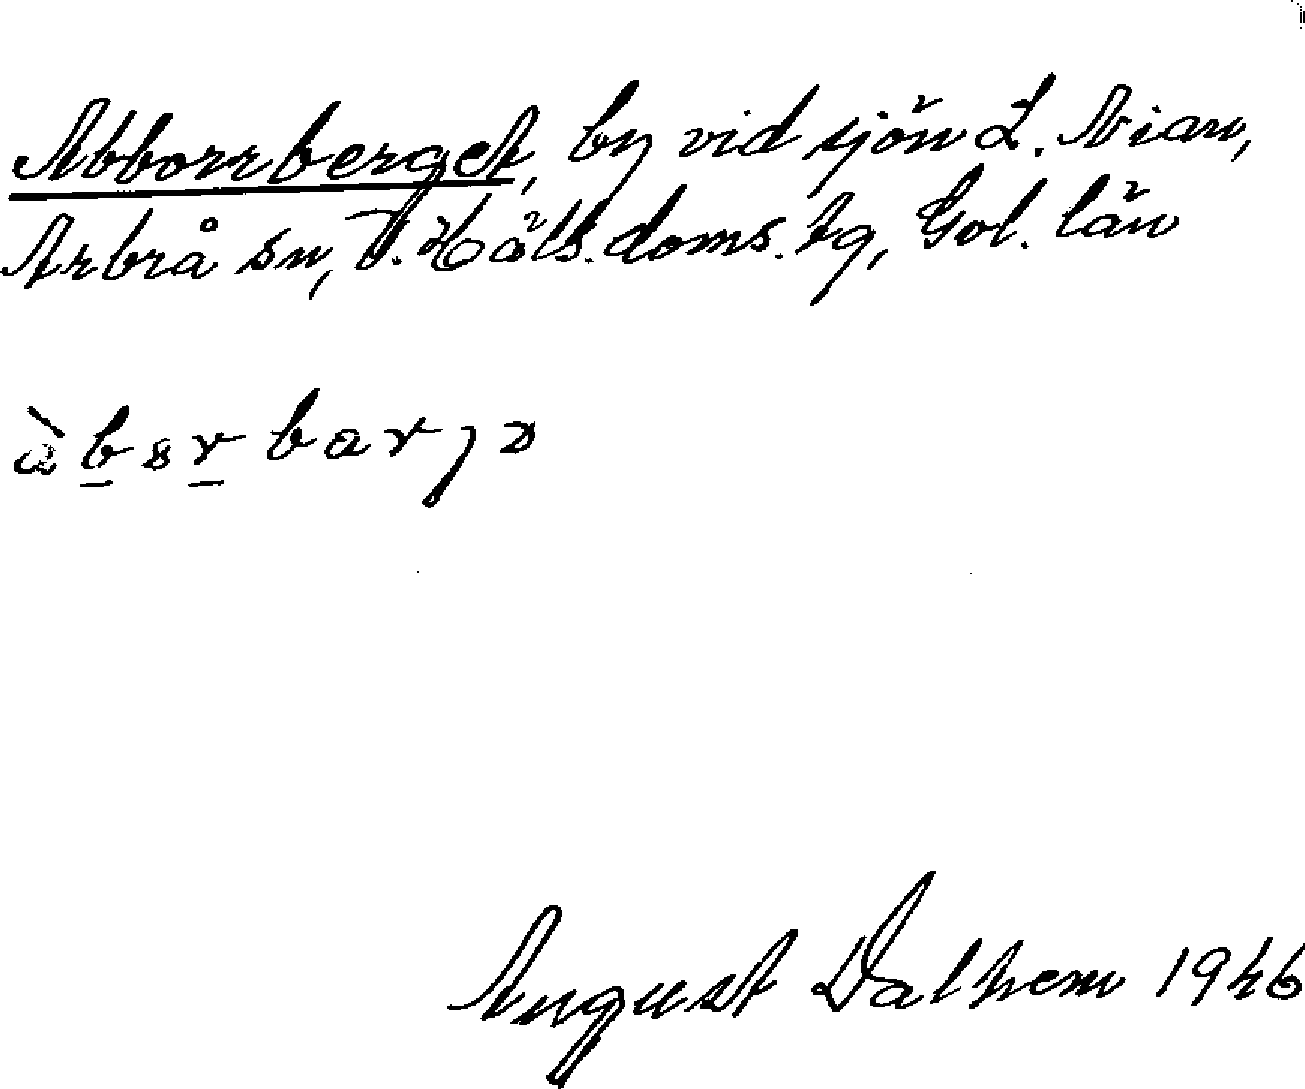 Abborrberget, by vid sjön L. Nian,
Arbrå sn, V. Häls. doms. tg, Gvl. län
àbərbarjə
August Dalhem 1946